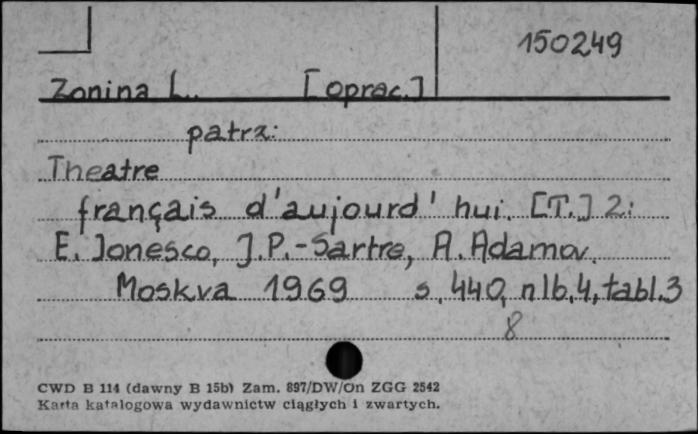 150249
Zonina L. [oprac.]
patrz:
Theatre
français d'aujourd'hui. [T.] 2:
E. Ionesco, J.P.-Sartre, A. Adamov.
Moskva 1969 s. 440, nlb. 4, tabl. 3
8
CWD B 114 (dawny B 15b) Zam. 897/DW/On ZGG 2542
Karta katalogowa wydawnictw ciągłych i zwartych.